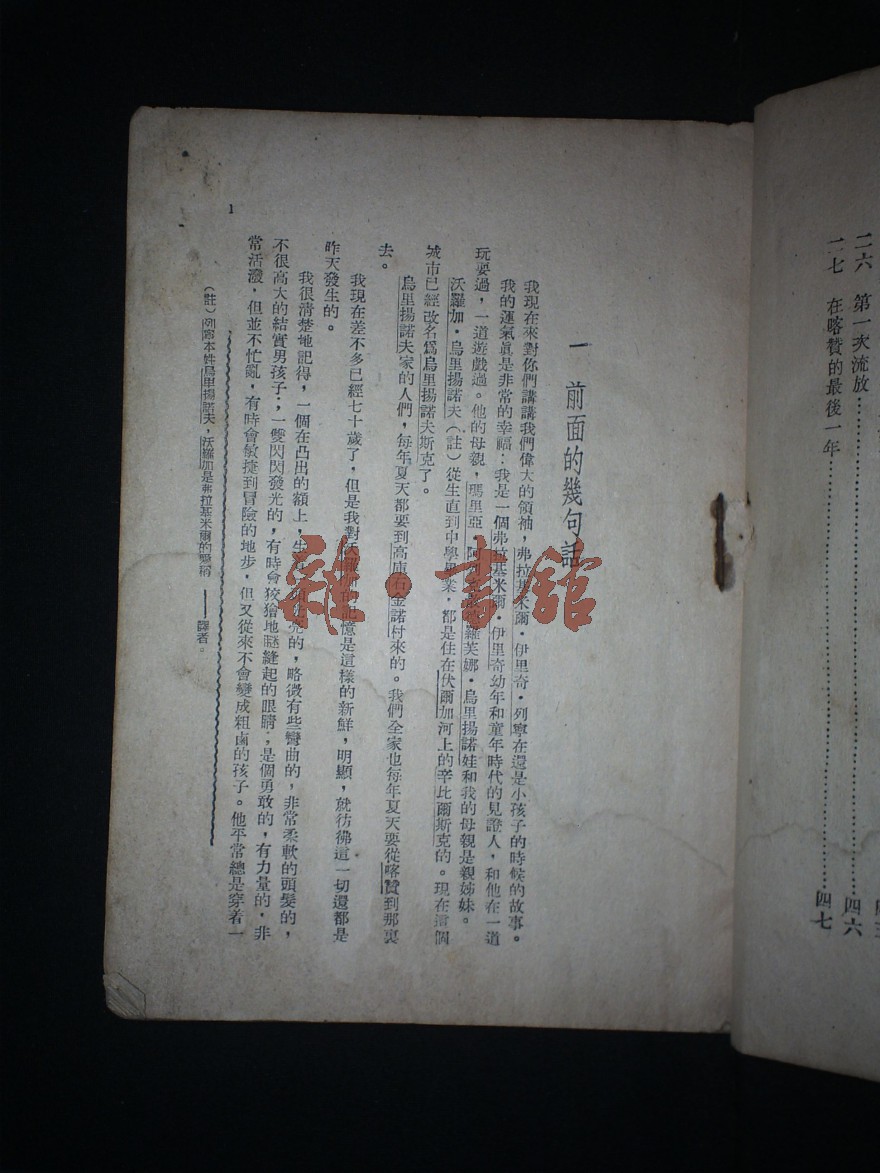 二六 第一次流放……四六
二七 在喀贊的最後一年……四七
一 前面的幾句話
我現在來對你們講講我們偉大的領袖，弗拉基米爾·伊里奇·列寧在還是小孩子的時候的故事。
我的運氣眞是非常的幸福：我是一個弗拉基米爾·伊里奇幼年和童年時代的見證人，和他在一道
玩耍過，一道遊戲過。他的母親，瑪里亞·阿羅芙娜·烏里揚諾娃和我的母親是親姊妹。
沃羅加·烏里揚諾夫（註）從生直到中學畢業，都是住在伏爾加河上的辛比爾斯克的。現在這個
城市已經改名爲烏里揚諾夫斯克了。
烏里揚諾夫家的人們，每年夏天都要到高庫石金諾村來的。我們全家也每年夏天要從喀贊到那裏
去。
我現在差不多已經七十歲了，但是我對沃羅加的記憶是這樣的新鮮，明顯，就彷彿這一切還都是
昨天發生的。
我很清楚地記得，一個在凸出的額上，生的，略微有些彎曲的，非常柔軟的頭髮的，
不很高大的結實男孩子；一雙閃閃發光的，有時會狡獪地瞇縫起的眼睛，是個勇敢的，有力量的，非
常活潑，但並不忙亂，有時會敏捷到冒險的地步，但又從來不會變成粗鹵的孩子。他平常總是穿着一
（註）列寧本姓烏里揚諾夫，沃羅加是弗拉基米爾的愛稱——譯者。
1
雜·書館